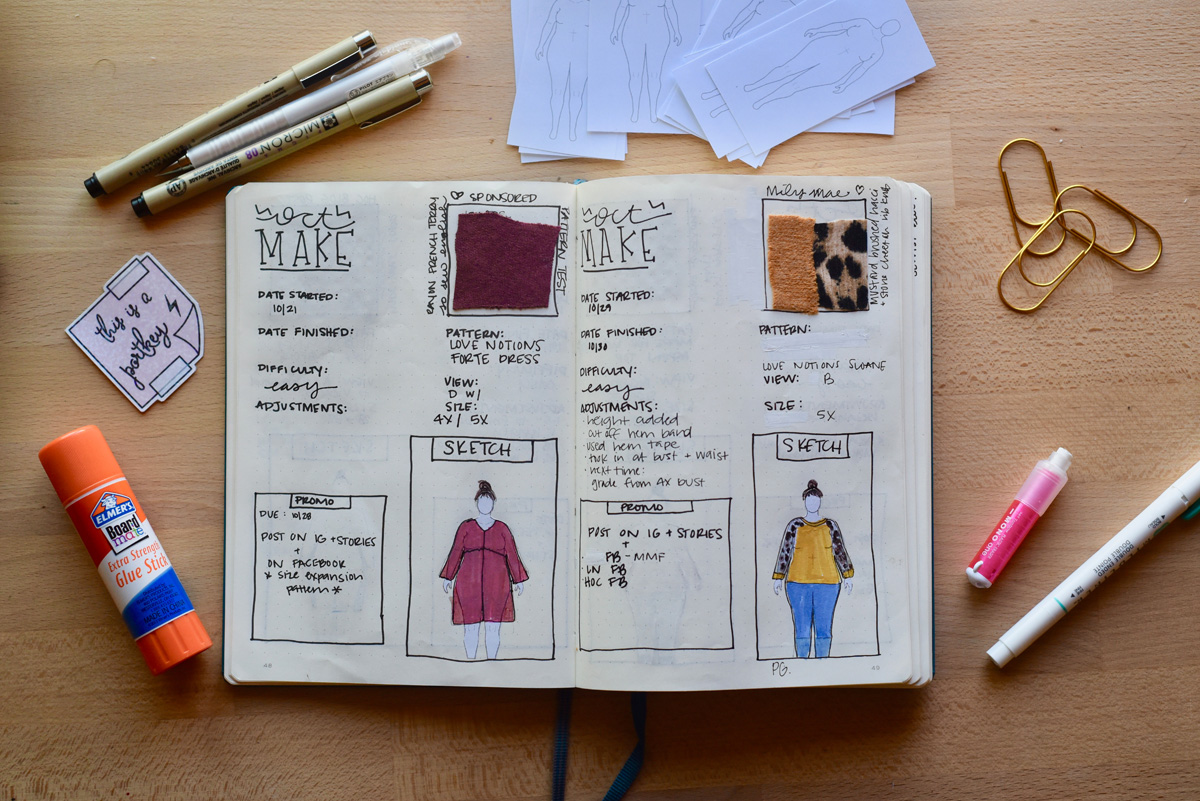 MICRON 08
this is a
portkey
ELMER'S
Board
mate
Extra Strength
Glue Stick
MADE IN
oct
MAKE
DATE STARTED:
10/21
DATE FINISHED:
DIFFICULTY:
easy
ADJUSTMENTS:
PROMO
DUE: 10/28
POST ON IG + STORIES
+
ON FACEBOOK
* size expansion
pattern *
♡ SPONSORED
RAYON FRENCH TERRY
PATTERN TEST
PATTERN:
LOVE NOTIONS
FORTE DRESS
VIEW:
D W/
SIZE:
4X / 5X
SKETCH
48
oct
MAKE
DATE STARTED:
10/29
DATE FINISHED:
10/30
DIFFICULTY:
easy
ADJUSTMENTS:
· height added
· cut off hem band
· used hem tape
· took in at bust + waist
· next time:
grade from 4X bust
PROMO
POST ON IG + STORIES
+
FB - MMF
· LN FB
· HOC FB
Mily mae ♡
mustard brushed hacci
+ stone cheetah rib knit
PATTERN:
LOVE NOTIONS SLOANE
VIEW: B
SIZE:
5X
SKETCH
PG.
49
MONO